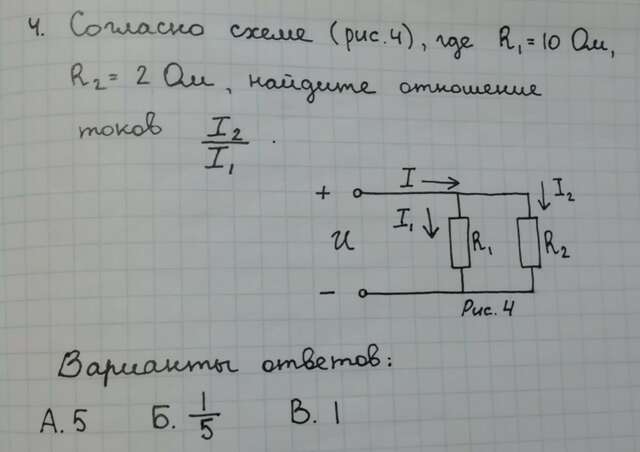 4. Согласно схеме (рис. 4), где R₁ = 10 Ом,
R₂ = 2 Ом, найдите отношение
токов I₂/I₁.
I
+
I₂
I₁
U
R₁
R₂
−
Рис. 4
Варианты ответов:
А. 5 Б. 1/5 В. 1